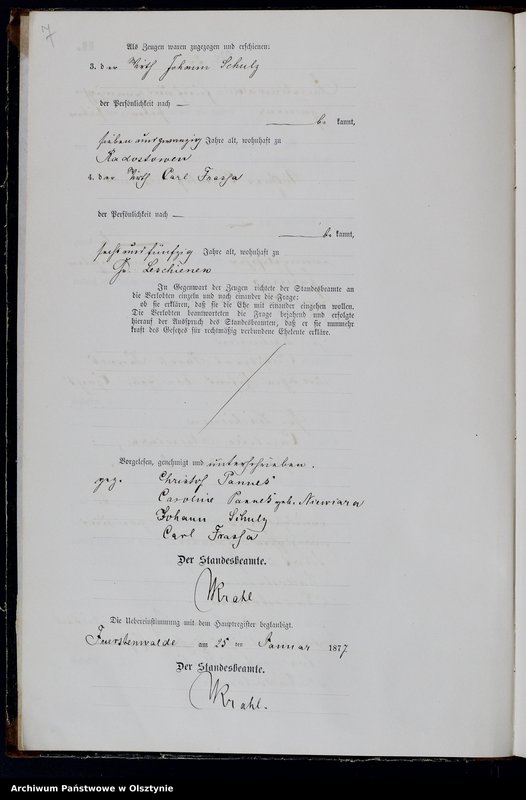 7
Als Zeugen waren zugezogen und erschienen:
3. der Wirth Johann Schulz
der Persönlichkeit nach —
be kannt,
sieben und zwanzig Jahre alt, wohnhaft zu
Radostowen
4. der Wirth Carl Frassa
der Persönlichkeit nach —
be kannt,
sechs und fünfzig Jahre alt, wohnhaft zu
Gr. Leschienen
In Gegenwart der Zeugen richtete der Standesbeamte an
die Verlobten einzeln und nach einander die Frage:
ob sie erklären, daß sie die Ehe mit einander eingehen wollen.
Die Verlobten beantworteten die Frage bejahend und erfolgte
hierauf der Ausspruch des Standesbeamten, daß er sie nunmehr
kraft des Gesetzes für rechtmäßig verbundene Eheleute erkläre.
Vorgelesen, genehmigt und unterschrieben.
gez. Christof Pannes
Caroline Pannes geb. Niewiara
Johann Schulz
Carl Frassa
Der Standesbeamte.
Krahl
Die Uebereinstimmung mit dem Hauptregister beglaubigt.
Fuerstenwalde am 25 ten Januar 1877
Der Standesbeamte.
Krahl.
Archiwum Państwowe w Olsztynie